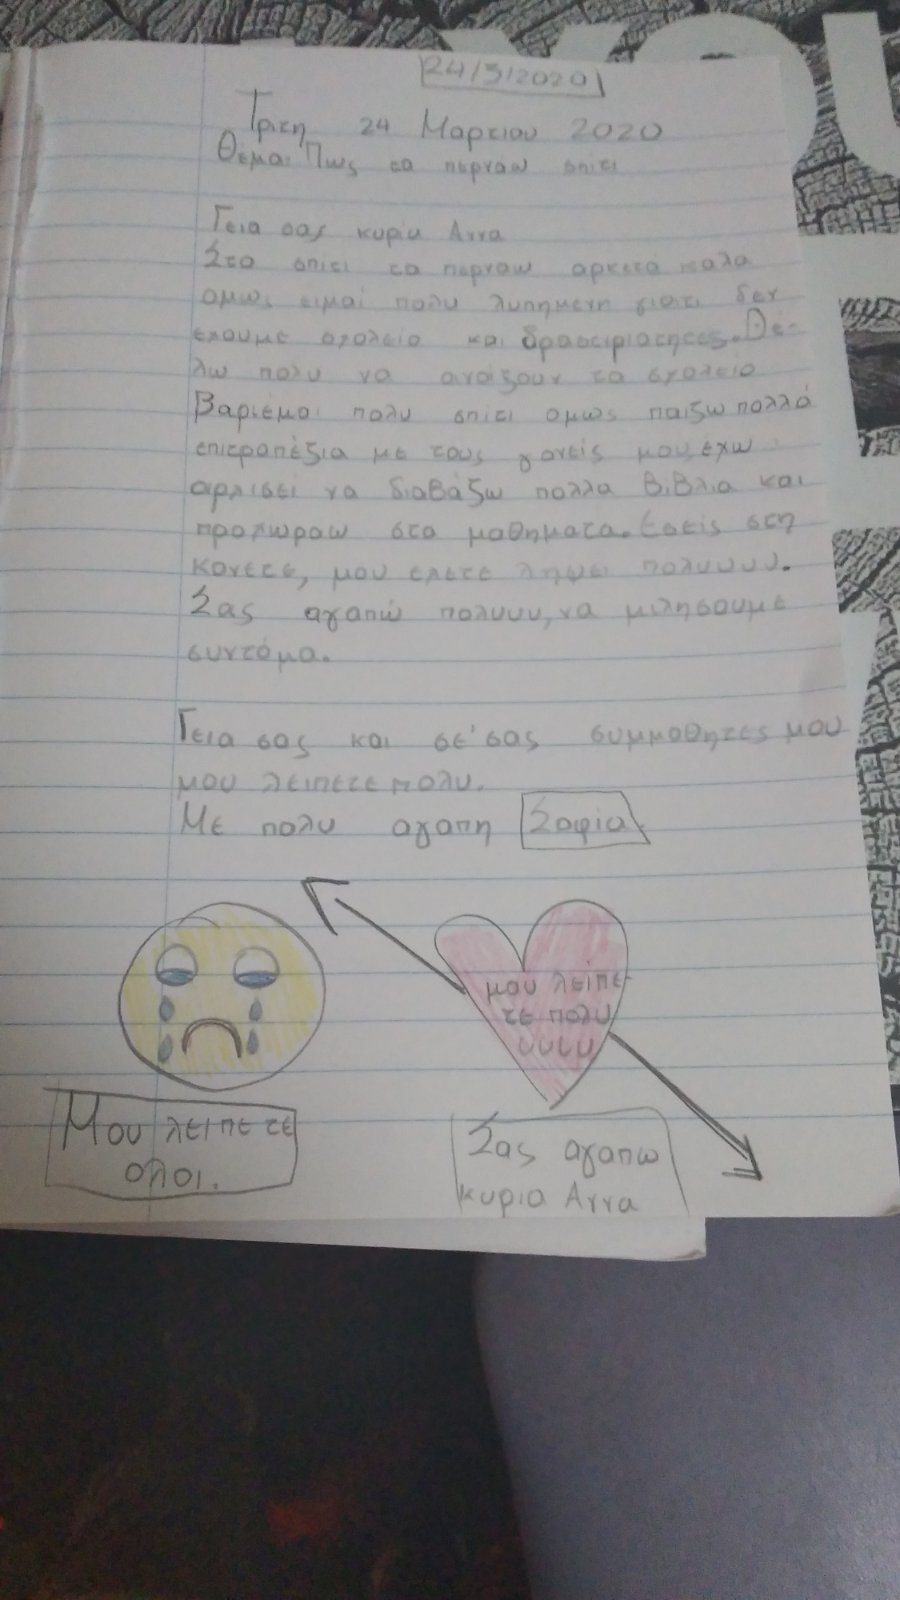 24/3/2020
Τριτη 24 Μαρτιου 2020
Θεμα: Πως τα περναω σπιτι
Γεια σας κυρια Αννα
Στο σπιτι τα περναω αρκετα καλα
ομως ειμαι πολυ λυπημενη γιατι δεν
εχουμε σχολειο και δραστιριοτητες. Θε-
λω πολυ να ανοιξουν τα σχολειο
Βαριεμαι πολυ σπιτι ομως παιζω πολλά
επιτραπέζια με τους γονείς μου, έχω
αρχισει να διαβάζω πολλα βιβλια και
προχωραω στα μαθηματα. Εσεις
κανετε, μου εχετε ληψει πολυυυυ.
Σας αγαπώ πολυυυ, να μιλησουμε
συντόμα.
Γεια σας και σε'σας συμμαθητες μου
μου λειπετε πολυ.
Με πολυ αγαπη Σοφία
μου λείπε-
τε πολυ
υυυυ
Μου λειπετε
ολοι.
Σας αγαπω
κυρια Αννα